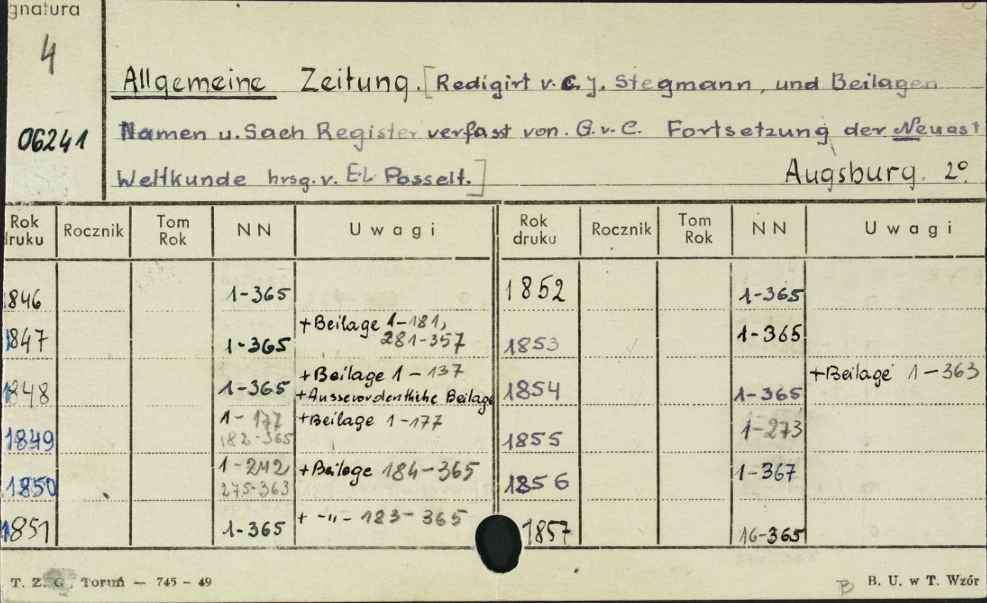 gnatura
4
06241
Allgemeine Zeitung. [Redigirt v. C. J. Stegmann, und Beilagen
Namen u. Sach Register verfasst von. G. v. C. Fortsetzung der Neuest
Weltkunde hrsg. v. E.L Posselt.] Augsburg. 2°.
Rok druku Rocznik Tom Rok NN Uwagi Rok druku Rocznik Tom Rok NN Uwagi
1846 1-365 1852 1-365
1847 1-365 +Beilage 1-181, 281-357 1853 1-365
1848 1-365 +Beilage 1-137 +Ausserordentliche Beilage 1854 1-365 +Beilage 1-363
1849 1-177 182-365 +Beilage 1-177 1855 1-273
1850 1-242 275-363 +Beilage 184-365 1856 1-367
1851 1-365 + -"- 183-365 1857 16-365
T. Z. G. Toruń — 745 - 49 B B. U. w T. Wzór